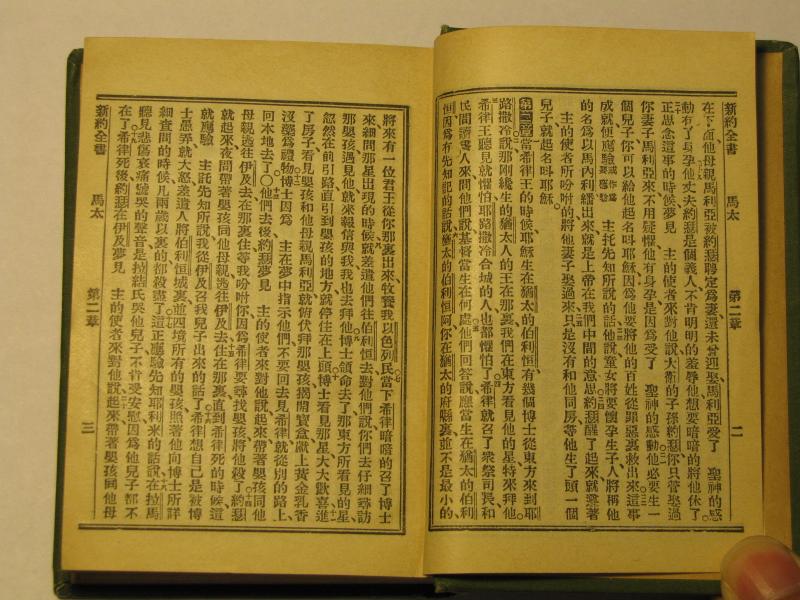 新約全書 馬太 第二章 二
在下面他母親馬利亞被約瑟聘定爲妻還未曾迎娶、馬利亞受了 聖神的感
動有了身孕他丈夫約瑟是個義人不肯明明的羞辱他想要暗暗的將他休了。
正思念這事的時候夢見 主的使者來對他說大衞的子孫約瑟你只管娶過
你妻子馬利亞來不用疑懼他有身孕是因爲受了 聖神的感動他必要生一
個兒子你可以給他起名叫耶穌因爲他要將他的百姓從罪惡裏救出來這事
成就便應驗或作爲要應驗 主托先知所說的話他說童女將要懷孕生子人將稱他
的名爲以馬內利繙出來就是上帝在我們中間的意思約瑟醒了起來就遵著
主的使者所吩咐的將他妻子娶過來只是沒有和他同房等他生了頭一個
兒子就起名叫耶穌
第二章 當希律王的時候耶穌生在猶太的伯利恒有幾個博士從東方來到耶
路撒冷說那剛纔生的猶太人的王在那裏我們在東方看見他的星特來拜他。
希律王聽見就懼怕耶路撒冷合城的人也都懼怕了希律就召了衆祭司長和
民間讀書人來問他們說基督當生在何處他們回答說應當生在猶太的伯利
恒因爲有先知記的話說猶太的伯利恒阿你在猶太的府縣裏並不是最小的
將來有一位君王從你那裏出來牧養我以色列民當下希律暗暗的召了博士
來細問那星出現的時候就差遣他們往伯利恒去對他們說你們去仔細尋訪
那嬰孩遇見他就來報信與我我也去拜他博士領命去了那東方所看見的星
忽然在前引路直引到嬰孩的地方就停住在上頭博士看見那星大大歡喜進
了房子看見嬰孩和他母親馬利亞就俯伏拜那嬰孩揭開寶盒獻上黃金乳香
沒藥爲禮物博士因爲 主在夢中指示他們不要回去見希律就從別的路上
回本地去了〇他們去後約瑟夢見 主的使者來對他說起來帶著嬰孩同他
母親逃往伊及去在那裏住等我吩咐你因爲希律要尋找嬰孩將他殺了約瑟
就起來夜間帶著嬰孩同他母親逃往伊及去住在那裏直到希律死的時候這
就應驗 主託先知所說我從伊及召我兒子出來的話了希律想自己是被博
士愚弄就大怒差遣人將伯利恒城裏並四境所有的嬰孩照著他向博士所詳
細查問的時候凡兩歲以裏的都殺盡了這正應驗先知耶利米的話說在拉馬
聽見悲傷哀痛號哭的聲音是拉結氏哭他兒子不肯受安慰因爲他兒子都不
在了希律死後約瑟在伊及夢見 主的使者來對他說起來帶著嬰孩同他母
新約全書 馬太 第二章 三